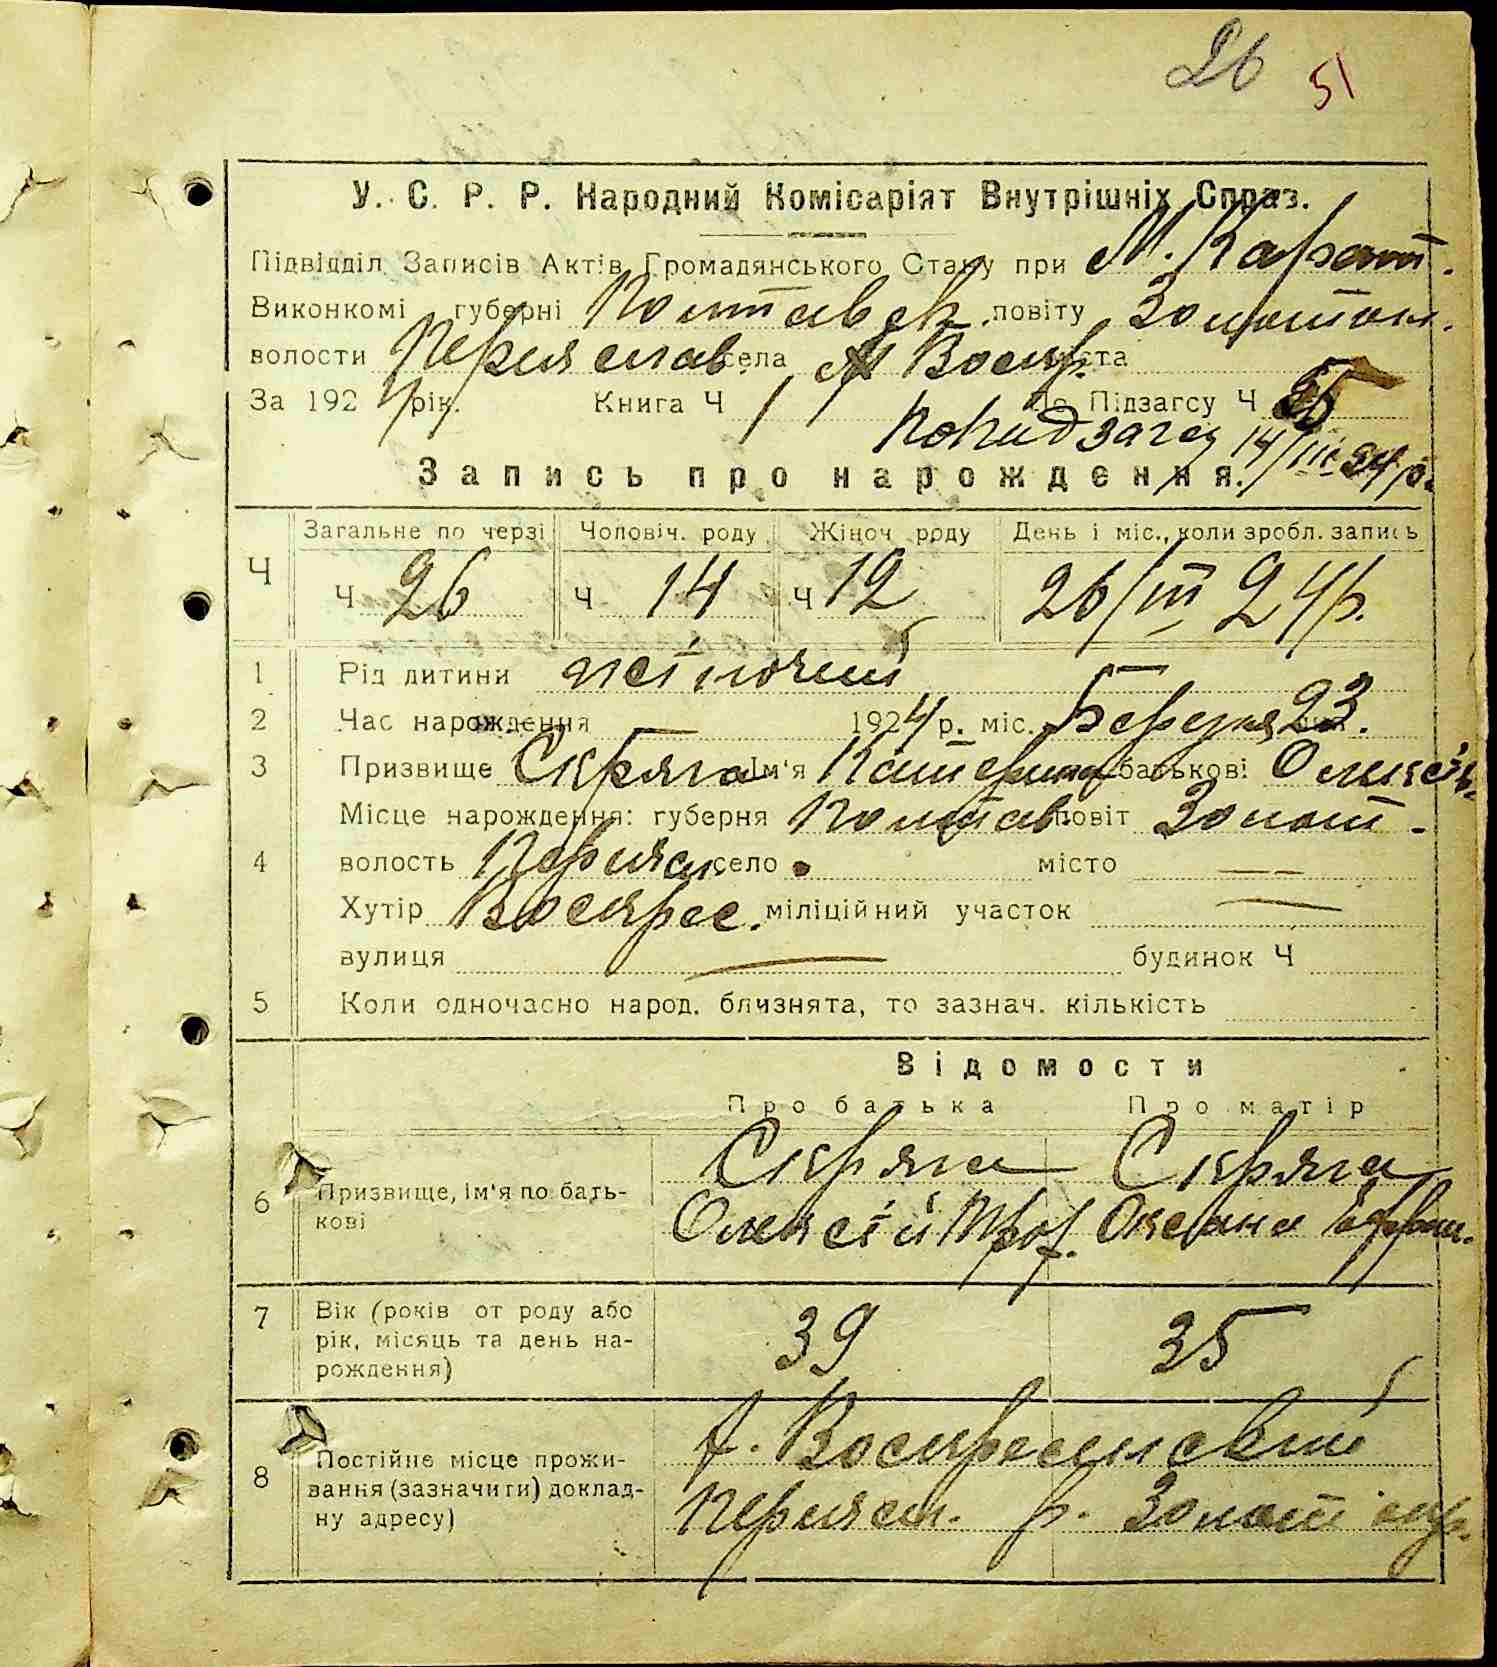 26 51
У. С. Р. Р. Народний Комісаріят Внутрішніх Справ.
Підвідділ Записів Актів Громадянського Стану при М. Карат.
Виконкомі губерні Полтавськ. повіту Золотон.
волости Переяслав. села міста
За 1924 рік. Книга Ч 1 До Підзагсу Ч
14/III 24 р.
Запись про нарождення.
Загальне по черзі Чоловіч. роду Жіноч роду День і міс., коли зробл. запись
Ч Ч 26 Ч 14 Ч 12 26/III 24 р.
1 Рід дитини жіночий
2 Час нарождення 1924 р. міс. Березня 23.
3 Призвище Скряга Ім'я Катерина батькові Олексіів.
Місце нарождення: губерня Полтав. повіт Золот.
4 волость Переясл. село місто —
Хутір Воскрес. міліційний участок —
вулиця — будинок Ч
5 Коли одночасно народ. близнята, то зазнач. кількість
Відомости
Про батька Про матір
Скряга Скряга
6 Призвище, ім'я по бать-
кові Олексій Проф. Оксана Єфрем.
7 Вік (років от роду або
рік, місяць та день на-
рождення) 39 35
8 х. Воскресенський
Постійне місце прожи-
вання (зазначити) доклад-
ну адресу) Переясл. р. Золот окр.